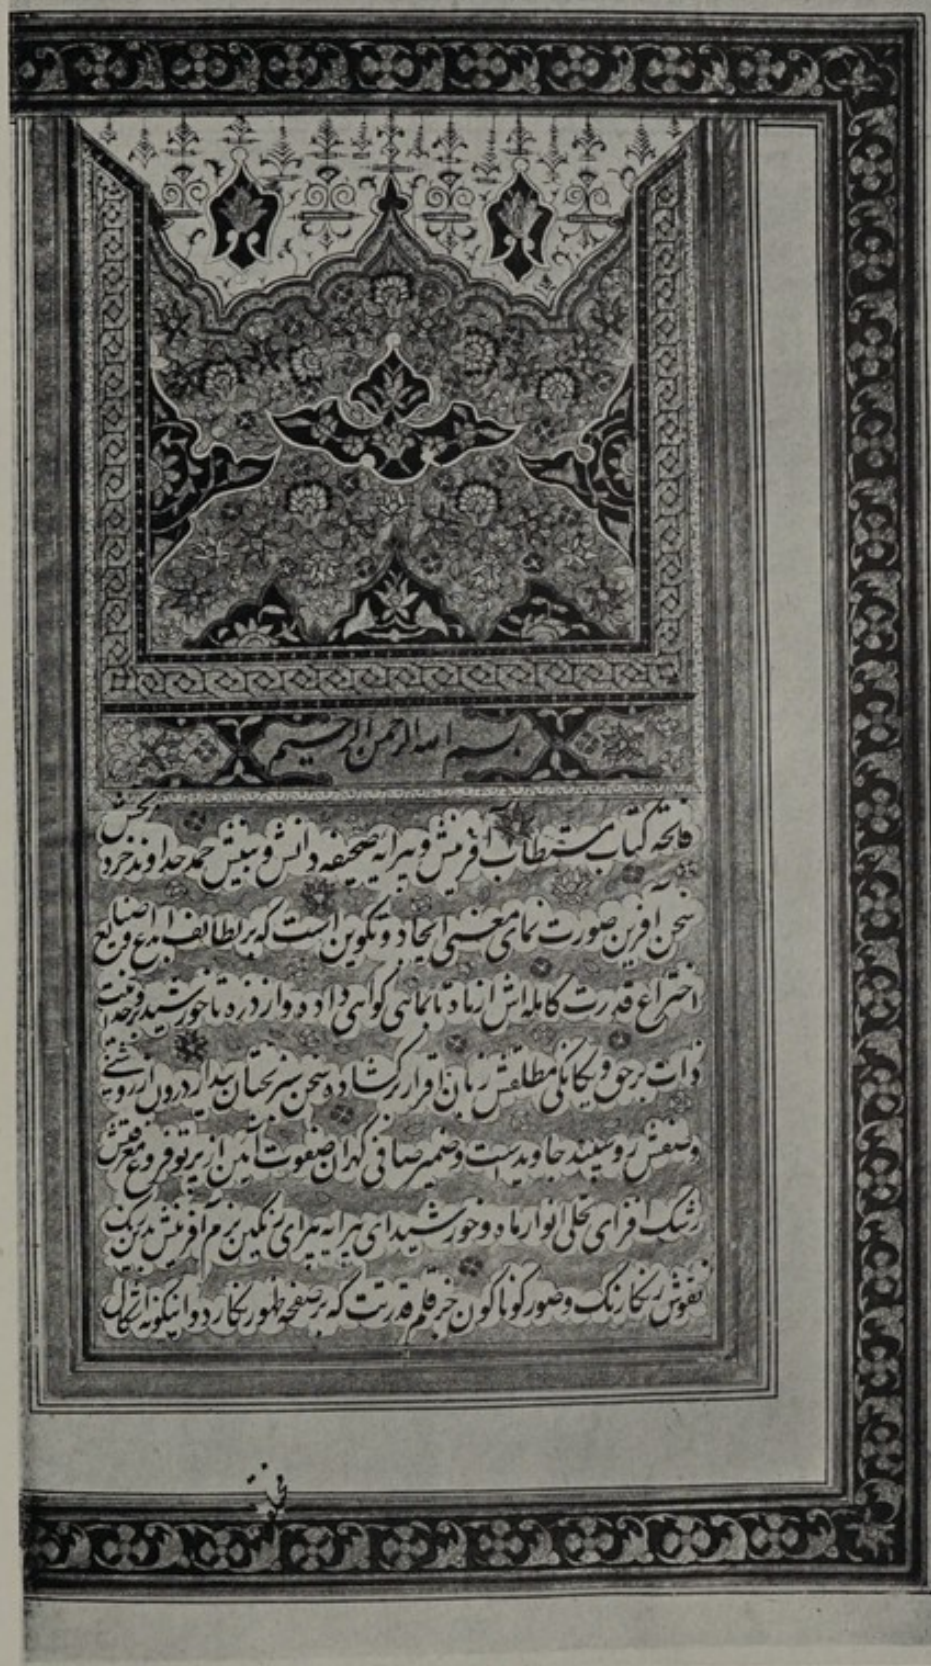 بسم الله الرحمن الرحیم
فاتحه کتاب مستطاب آفرینش و پیرایه صحیفه دانش و بینش حمد خداوند خرد بخش
سخن آفرین صورت نمای معنی ایجاد و تکوین است که بر لطائف ابداع و صنایع
اختراع قدرت کامله اش از ماه تا بماهی کواهی داده و از ذره تا خورشید بر
ذات برحق و یکانکی مطلقش زبان اقرار برکشاده سخن سرسبز بختان بیدار درون از
وصفش روسپید جاویدست و ضمیر صافی کهران صفوت آیین از پرتو فروغ معرفتش
رشک افزای تجلی انوار ماه و خورشید ای پیرایه پیرای رنکین بزم آفرینش بدین
نقوش رنکارنک و صور کوناکون جز قلم قدرتت که بر صفحه ظهور نکارد و اینکونه